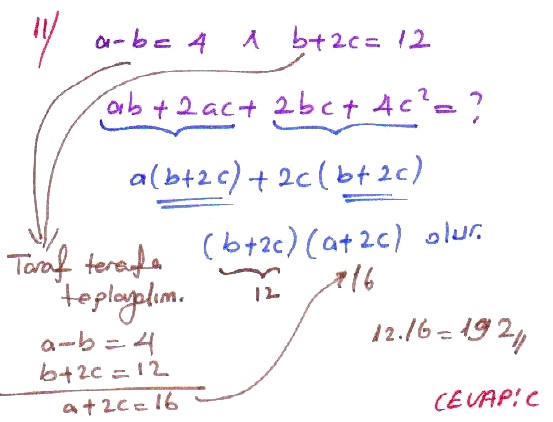 11/ a-b= 4 ∧ b+2c= 12
ab + 2ac + 2bc + 4c²= ?
a(b+2c) + 2c(b+2c)
(b+2c)(a+2c) olur.
12
16
Taraf tarafa
toplayalım.
a-b = 4
b+2c = 12
a+2c = 16
12.16 = 192//
CEVAP: C